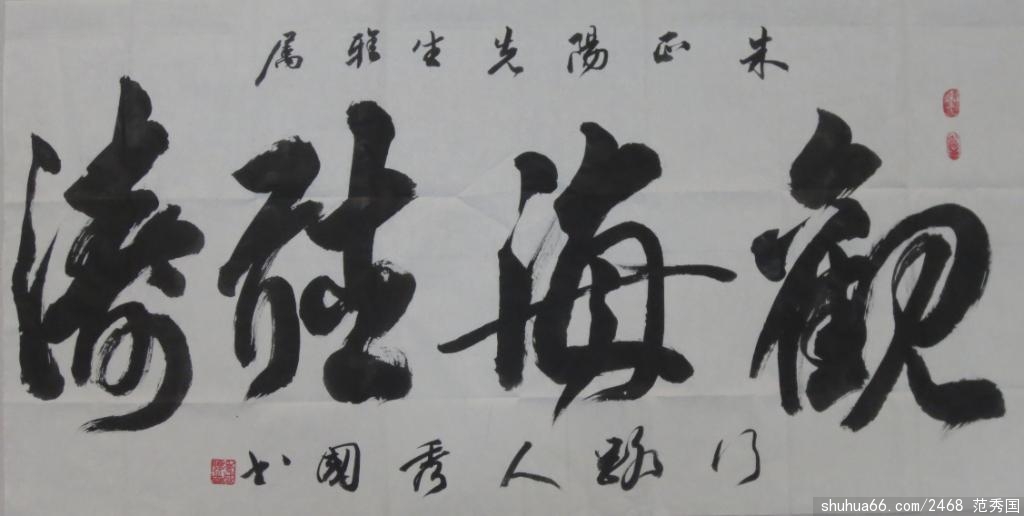 朱正陽先生雅属
觀海聽濤
行路人秀國书
shuhua66.com/2468 范秀国